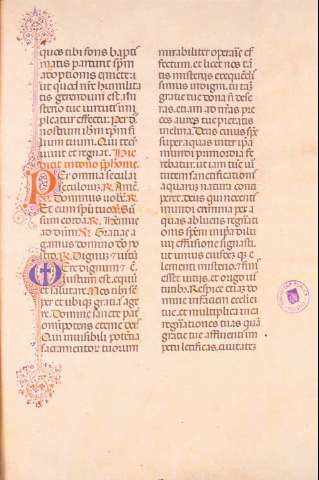 ques tibi fons bapti
matis parturit sp̄m
adoptionis emitte: ut
ut quod nr̄e humilita
tis gerendum est mi
sterio tue virtutis im
pleatur effectu. per d.
nostrum ihm̄ xpm̄ fi
lium tuum. Qui tecū
uiuit et regnat. Hic
dicat in tono p̄phonie.
Per omnia secula
seculorum. R. Amē.
V. Dominus vobis. R.
Et cum spū tuo. V. Sū
sum corda. R. Habem
ad dom. V. Gratias a
gamus domino dō nō
R. Dignum & iustū
Vere dignum & c̄
iustum est. equū
et salutare. Nos tibi sē
per et ubiq; gratias age
re. Domine sancte pat̄
omnipotens eterne deus.
Qui inuisibili potētia
sacramentorum tuorum
mirabiliter operaris ef
fectum. et licet nos tā
tis misteriis exequēdis
simus indigni. tu tam̄
gratie tue dona nō dese
rens. etiam ad nr̄as pre
ces aures tue pietatis
inclina. Deus cuius sp̄s
super aquas inter ipa
mundi primordia fe
rebatur. ut iam tūc uir
tutem sanctificationis
aquarum natura conci
peret. Deus qui nocentis
mundi crimina per a
quas abluens regn̄atiōis
spēm in ipa dilu
uii effusione signasti.
ut unius eiusdēq; e
lementi misterio. & finis
esset uitiis. et origo uir
tutibꝰ. Respice quesum̄ do
mine in faciem ecclesie
tue. et multiplica in ea
regn̄ationes tuas. qui
gratie tue affluentis im
petu letificas ciuitatē